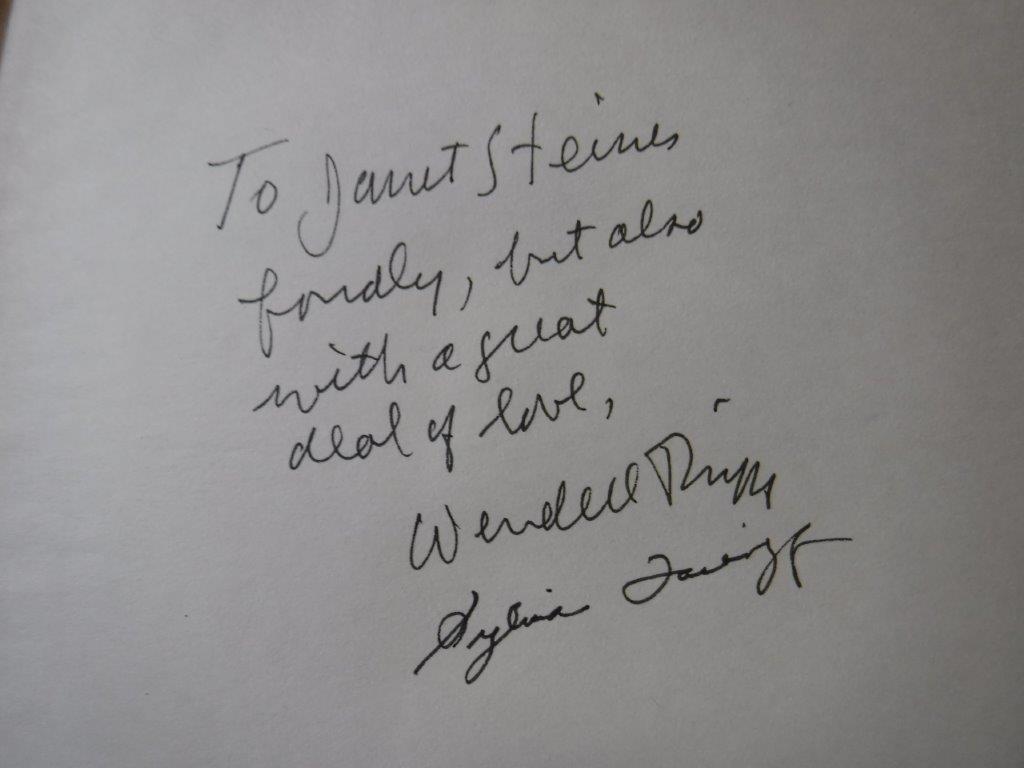 To Janet Steines
fondly, but also
with a great
deal of love,
Wendell
Sylvia